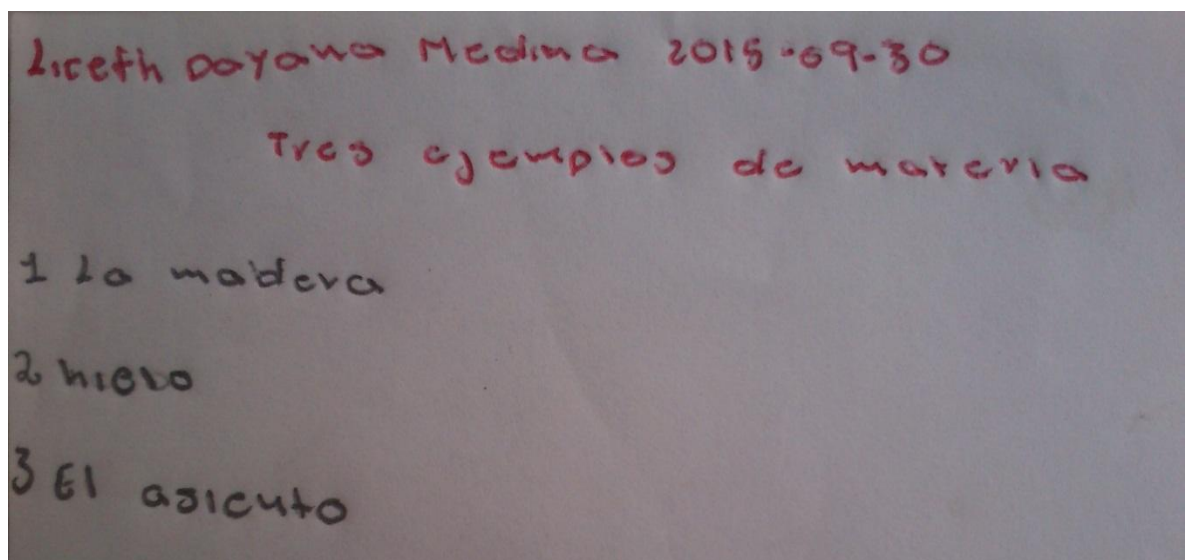 Liceth Dayana Medina 2015-09-30
Tres ejemplos de materia
1 La madera
2 hielo
3 El asiento